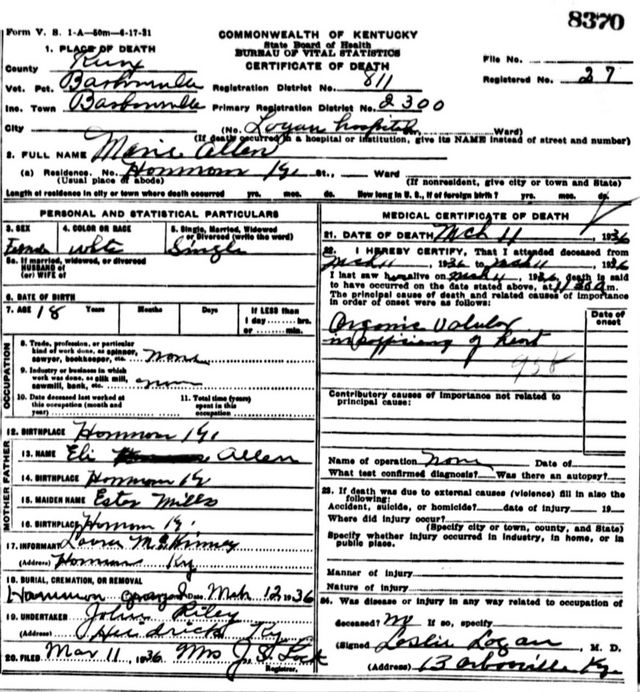 8370
Form V. S. 1-A—50m—6-17-31
COMMONWEALTH OF KENTUCKY
State Board of Health
BUREAU OF VITAL STATISTICS
CERTIFICATE OF DEATH
1. PLACE OF DEATH
County Knox
File No.
Vot. Pct. Barbourville Registration District No. 811
Registered No. 27
Inc. Town Barbourville Primary Registration District No. 2300
City (No. Logan hospital Ward)
(If death occurred in a hospital or institution, give its NAME instead of street and number)
2. FULL NAME Marie Allen
(a) Residence. No. Hammon Ky. St., Ward
(Usual place of abode) (If nonresident, give city or town and State)
Length of residence in city or town where death occurred yrs. mos. ds. How long in U. S., if of foreign birth? yrs. mos. ds.
PERSONAL AND STATISTICAL PARTICULARS
3. SEX 4. COLOR OR RACE 5. Single, Married, Widowed or Divorced (write the word)
Female white Single
5a. If married, widowed, or divorced
HUSBAND of
(or) WIFE of
6. DATE OF BIRTH
7. AGE 18 Years Months Days If LESS than
1 day hrs.
or min.
OCCUPATION
8. Trade, profession, or particular
kind of work done, as spinner,
sawyer, bookkeeper, etc. none
9. Industry or business in which
work was done, as silk mill,
sawmill, bank, etc.
10. Date deceased last worked at
this occupation (month and
year)
11. Total time (years)
spent in this
occupation
12. BIRTHPLACE Hammon Ky.
MOTHER FATHER
13. NAME Eli Allen
14. BIRTHPLACE Hammon Ky
15. MAIDEN NAME Ester Mills
16. BIRTHPLACE Hammon Ky.
17. INFORMANT McKinney
(Address) Hammon Ky
18. BURIAL, CREMATION, OR REMOVAL
Hammon Date Mch 12 1936
19. UNDERTAKER John Riley
(Address) Ky.
20. FILED Mar 11, 1936 Mrs J. S.
Registrar.
MEDICAL CERTIFICATE OF DEATH
21. DATE OF DEATH Mch 11 1936
22. I HEREBY CERTIFY, That I attended deceased from
Mch 11, 1936 to Mch 11, 1936
I last saw h alive on Mch 11, 1936, death is said
to have occurred on the date stated above, at m.
The principal cause of death and related causes of importance
in order of onset were as follows:
Date of
onset
Organic Valvular
insufficiency of heart
Contributory causes of importance not related to
principal cause:
Name of operation none Date of
What test confirmed diagnosis? Was there an autopsy?
23. If death was due to external causes (violence) fill in also the
following:
Accident, suicide, or homicide? date of injury 19
Where did injury occur?
(Specify city or town, county, and State)
Specify whether injury occurred in industry, in home, or in
public place.
Manner of injury
Nature of injury
24. Was disease or injury in any way related to occupation of
deceased? no If so, specify
(Signed) Leslie Logan, M. D.
(Address) Barbourville Ky.